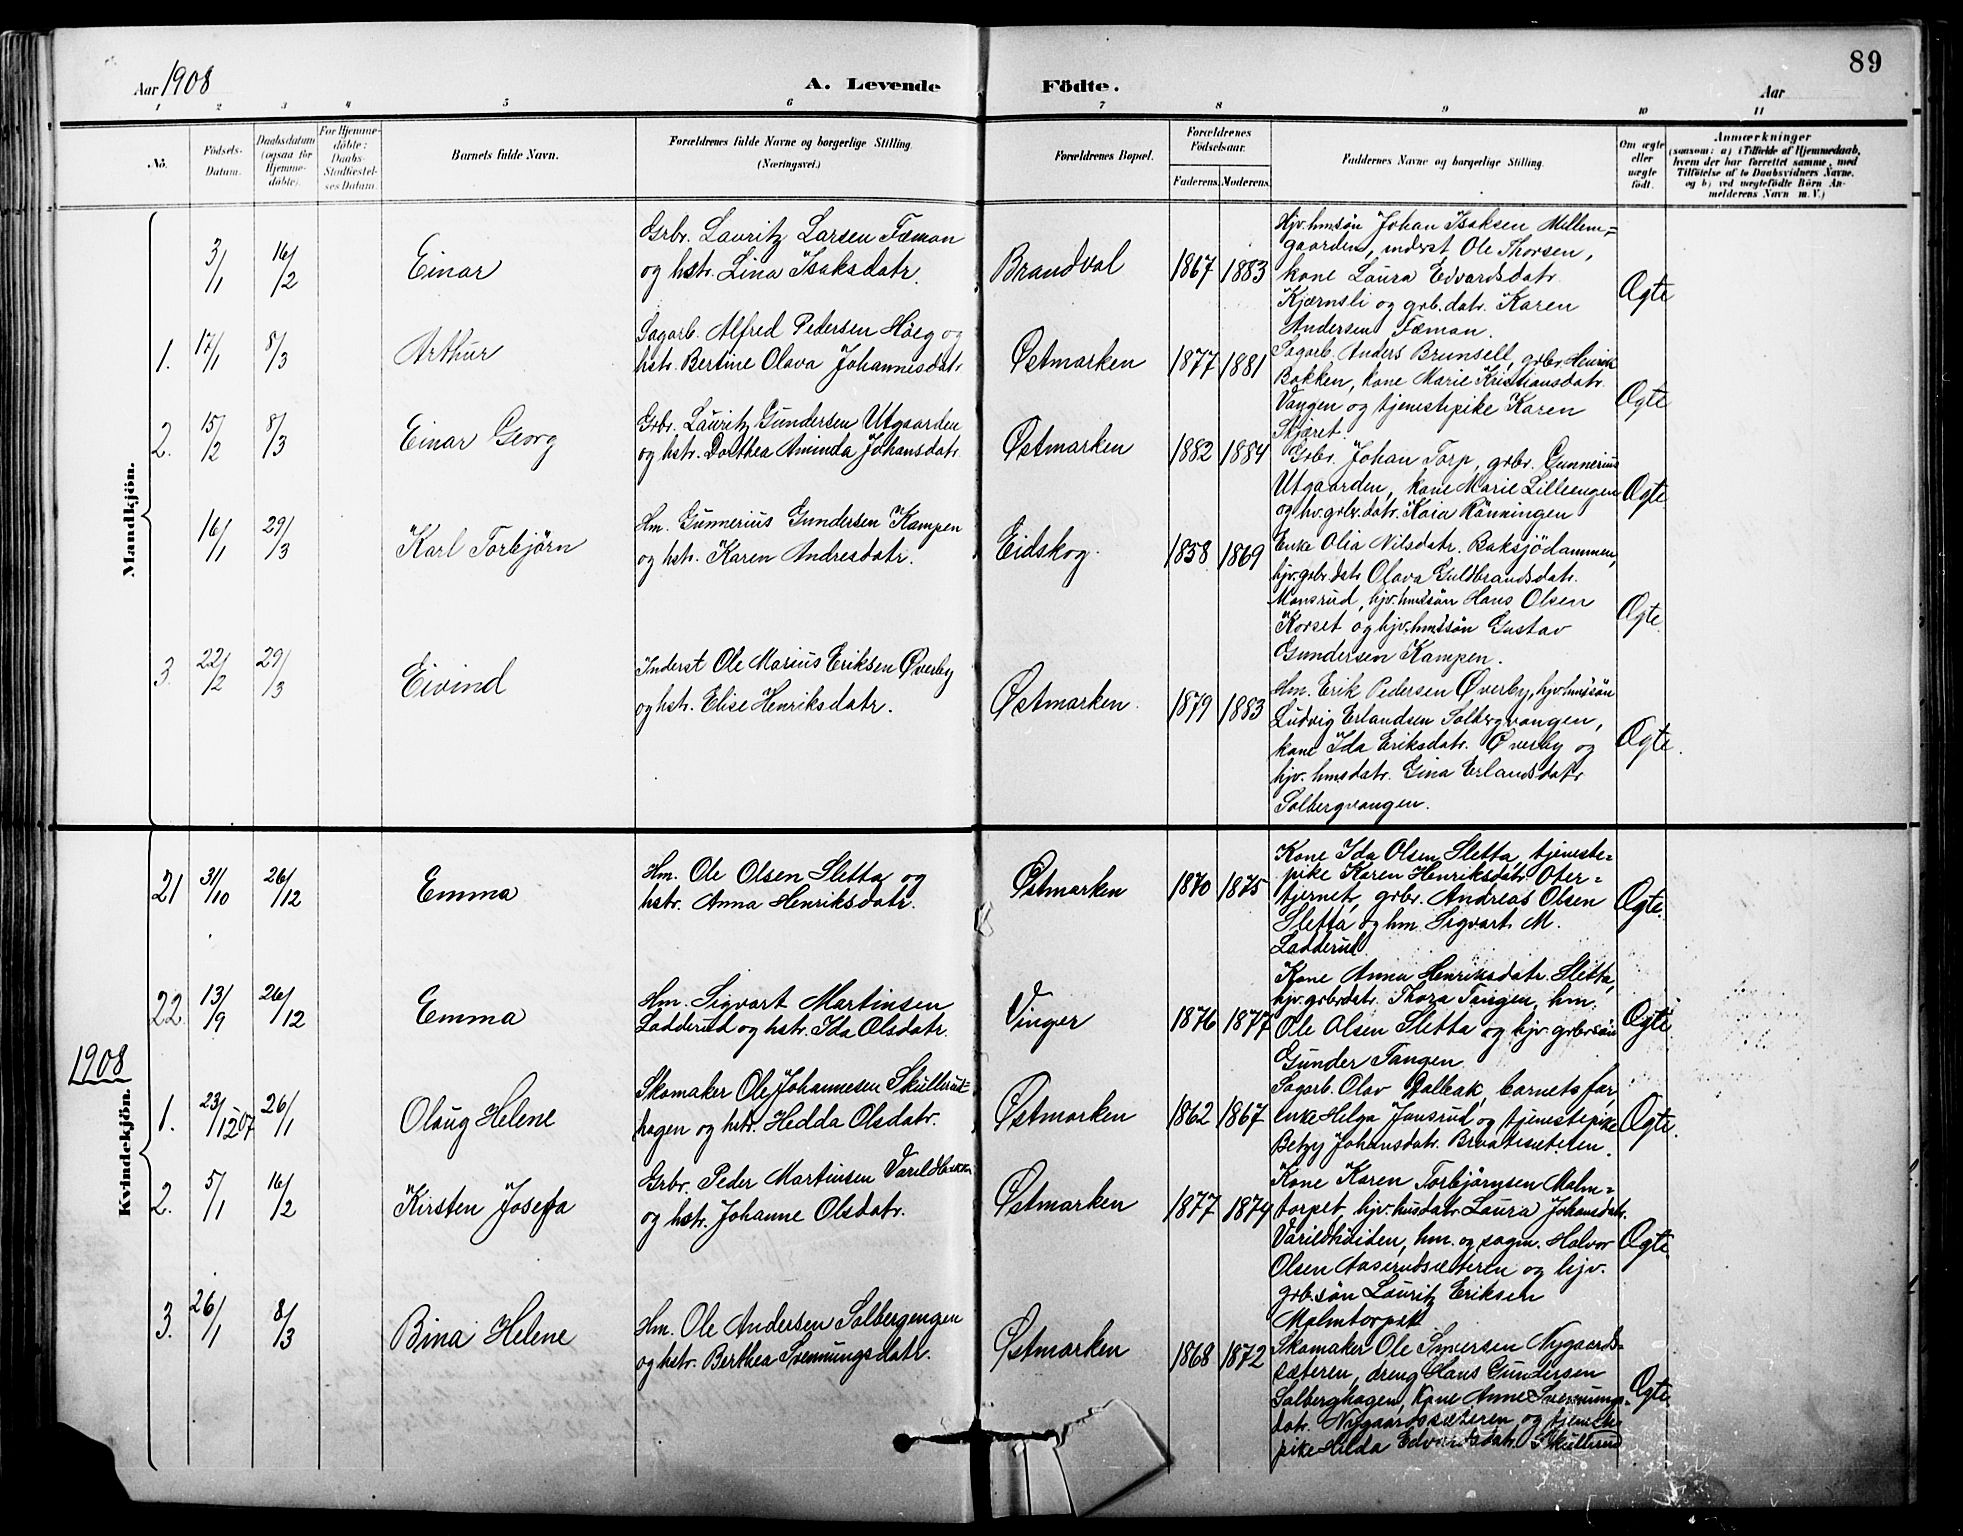 89
Aar 1908
A. Levende Födte.
Aar
1 2 3 4 5 6 7 8 9 10 11
No.
Födsels-
Datum.
Daabsdatum
(ogsaa for
Hjemme-
döbte).
For Hjemme-
döbte:
Daabs-
Stadfæstel-
ses Datum.
Barnets fulde Navn.
Forældrenes fulde Navne og borgerlige Stilling.
(Næringsvei.)
Forældrenes Bopæl.
Forældrenes
Födselsaar.
Faderens. Moderens.
Faddernes Navne og borgerlige Stilling.
Om ægte
eller
uægte
födt.
Anmærkninger
(saasom: a) i Tilfælde af Hjemmedaab,
hvem der har forrettet samme, med
Tilföielse af to Daabsvidners Navne.
og b) ved uægtefödte Börn An-
melderens Navn m. V.)
Mandkjön.
3/1 16/2 Einar
Grbr. Lauritz Larsen Fæmon
og hstr. Lina Isaksdatr.
Brandval 1867 1883
Hjv. hmsøn Johan Isaksen Millem=
gaarden, inderst Ole Thorsen,
kone Laura Edvardsdatr.
Kjærnsli og grb. datr. Karen
Andersen Fæmon.
Ægte
1. 17/1 8/3 Arthur
Sagarb. Alfred Pedersen Høeg og
hstr. Bertine Olava Johannesdatr
Østmarken 1877 1881
Sagarb. Anders Brunsell, grbr. Henrik
Bakken, kone Marie Kristiansdatr.
Vangen og tjenestepike Karen
Skjæret.
Ægte
2. 15/2 8/3 Einar Georg
Grbr. Lauritz Gundersen Utgaarden
og hstr. Dorthea Aminda Johansdatr
Østmarken 1882 1884
Grbr. Johan Torp, grbr. Gunnerius
Utgaarden, kone Marie Lilleengen
og hv. grbr. datr. Kaia Rönningen
Ægte
16/1 29/3 Karl Torbjörn
Hm. Gunnerius Gundersen Kampen
og hstr. Karen Andresdatr.
Eidskog. 1858 1869
Enke Olia Nilsdatr. Baksjödammen,
hjv. grbr. datr Olava Guldbrandsdatr.
Monsrud, hjv. hmdsøn Hans Olsen
Korset og hjv. hmdsøn Gustav
Gundersen Kampen.
Ægte.
3. 22/2 29/3 Eivind
Inderst Ole Marius Eriksen Øverby
og hstr. Elise Henriksdatr.
Østmarken. 1879 1883
Hm. Erik Pedersen Øverby, hjv. hmdsøn
Ludvig Erlandsen Solbergvangen,
kone Ida Eriksdatr. Øverby og
hjv. hmsdatr. Gina Erlandsdatr
Solbergvangen.
Ægte.
Kvindekjön.
21 31/10 26/12 Emma
Hm. Ole Olsen Sletta og
hstr. Anna Henriksdatr.
Østmarken 1870 1875
Kone Ida Olsen Sletta, tjeneste=
pike Karen Henriksdatr. Oter=
tjernet, grbr. Andreas Olsen
Sletta og hm. Sigvart M.
Ladderud.
Ægte.
22. 13/9 26/12 Emma
Hm. Sigvart Martinsen
Ladderud og hstr. Ida Olsdatr.
Vinger 1876 1877
Kone Anna Henriksdatr. Sletta,
hjv. grbrdatr. Thora Tangen, hm.
Ole Olsen Sletta og hjv. grbrsøn
Gunder Tangen
Ægte.
1908
1. 23/12 07 26/1 Olaug Helene
Skomaker Ole Johannesen Skullerud=
hagen og hstr. Hedda Olsdatr.
Østmarken 1862 1867
Sagarb. Olav Dalbak, barnets far
enke Helga Jansrud og tjenestepike
Betzy Johansdatr.
Ægte.
2. 5/1 16/2 Kirsten Josefa
Grbr. Peder Martinsen Varildbakken
og hstr. Johanne Olsdatr.
Østmarken 1877 1874
Kone Karen Torbjørnsen Malm=
torpet, hjv. husdatr. Laura Johansdatr.
Varildheiden, hm. og sagm. Halvor
Olsen Aaserudsæteren og hjv.
grb. søn Lauritz Eriksen
Malmtorpet.
Ægte.
3. 26/1 8/3 Bina Helene
Hm. Ole Andersen Solbergengen
og hstr. Berthea Svennungsdatr.
Østmarken 1868 1872
Skomaker Ole Syversen Nygaards=
sæteren, dreng Hans Gundersen
Solberghagen, Kone Anne Svennungs=
datr. Nygaardssæteren og tjeneste
pike Hilda Edvardsdatr. Skullerud
Ægte.